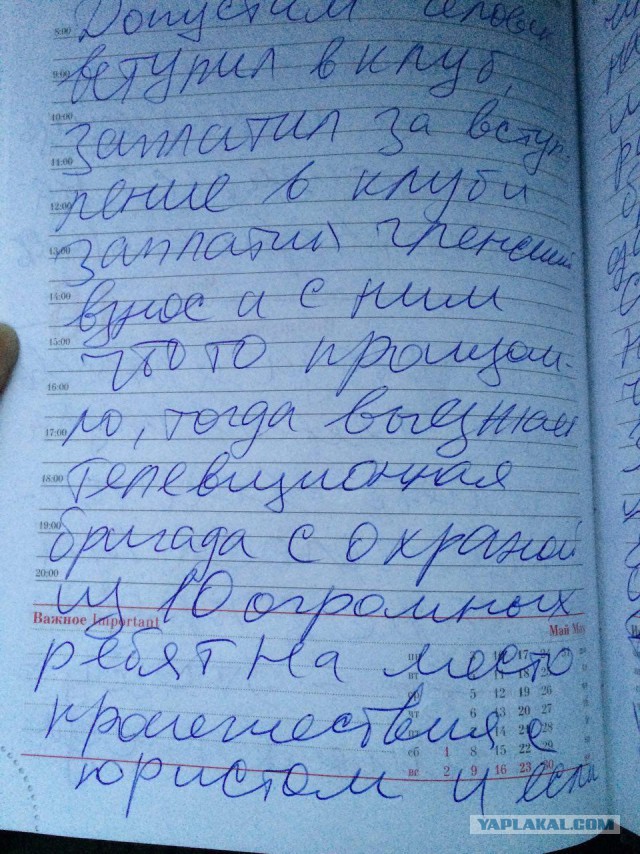 8:00 Допустим человек
9:00 вступил в клуб,
10:00 заплатил за вступ-
11:00
12:00 ление в клуб и
13:00 заплатил членский
14:00 взнос и с ним
15:00 что то произош-
16:00
17:00 ло, тогда выезжает
18:00 телевизионная
19:00 бригада с охраной
20:00 из 10 огромных
Важное Important Май May
ребят на место
проишествия с
юристом и если
сб 1 8 15 22 29
вс 2 9 16 23 30
YAPLAKAL.COM